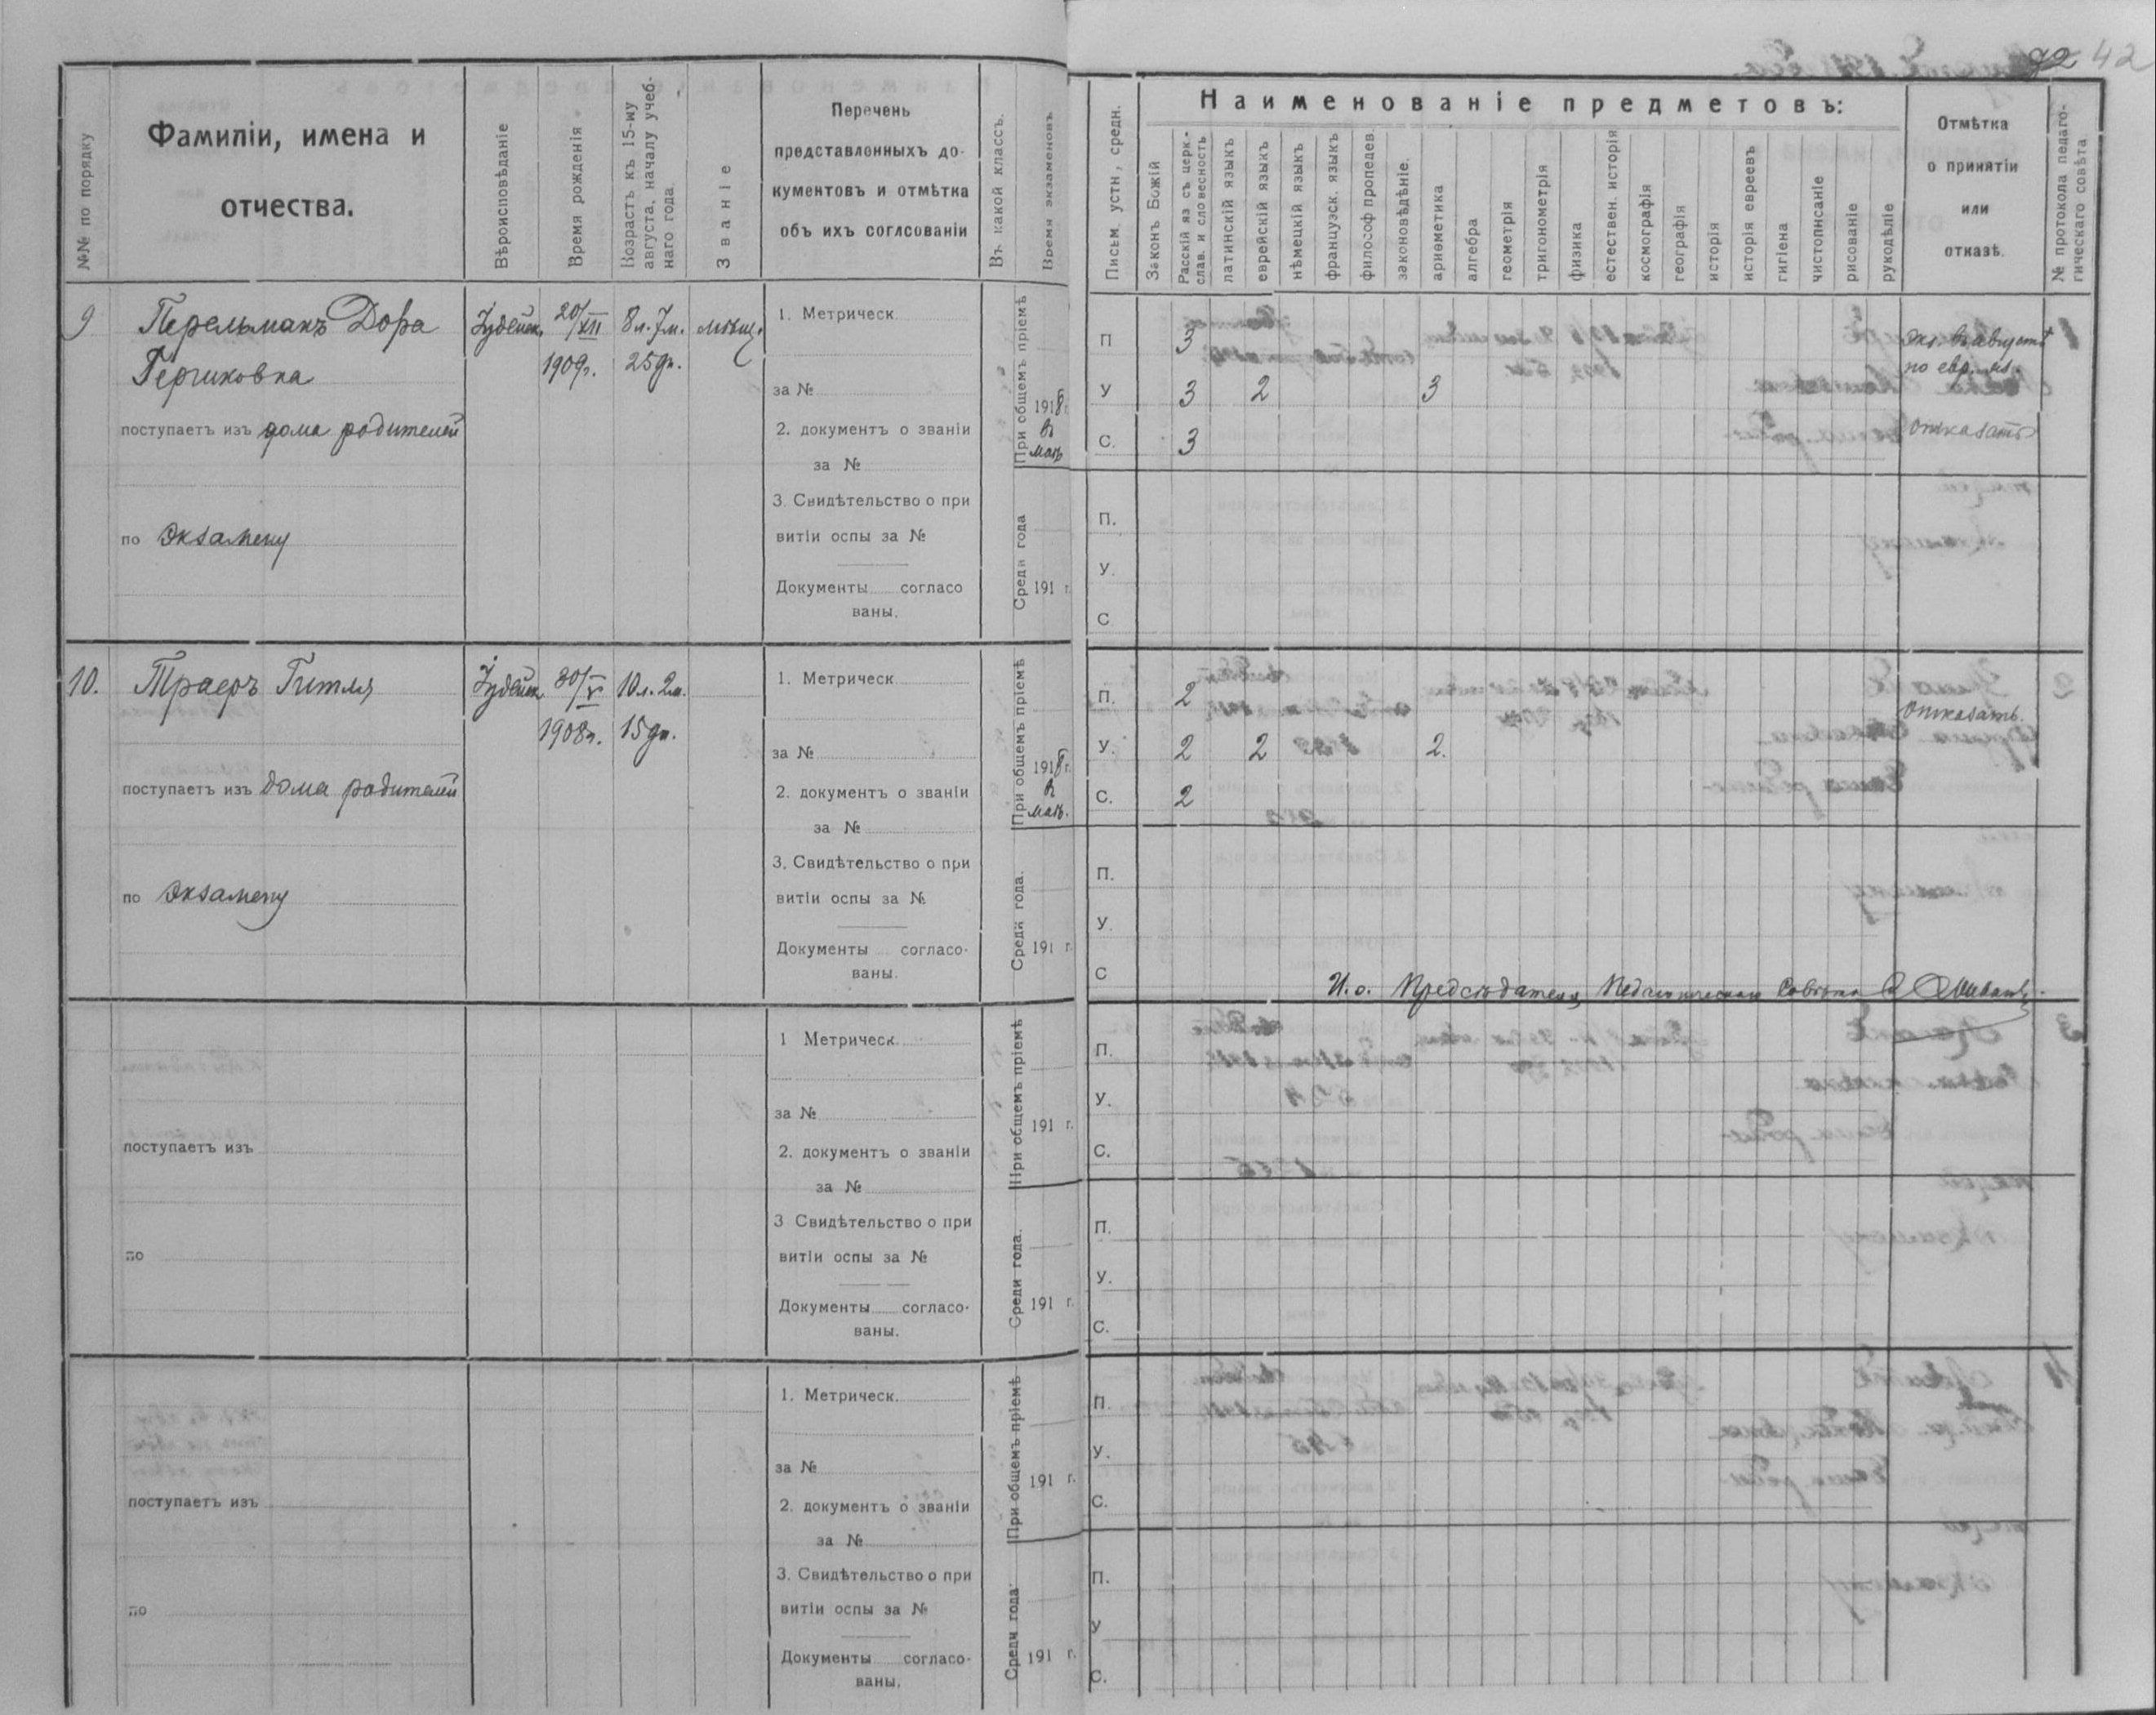 42
№№ по порядку
Фамиліи, имена и
отчества.
Вѣроисповѣданіе
Время рожденія
Возрастъ къ 15-му
августа, началу учеб-
наго года.
Званіе
Перечень
представленныхъ до-
кументовъ и отмѣтка
объ ихъ соглсованіи
Въ какой классъ.
Время экзаменовъ
Письм. устн, средн.
Наименованіе предметовъ:
Законъ Божій
Расскій яз съ церк.-
слав. и словесность
латинскій языкъ
еврейскій языкъ
нѣмецкій языкъ
французск. языкъ
философ пропедев
законовѣдѣніе.
ариѳметика
алгебра
геометрія
тригонометрія
физика
естествен. исторія
космографія
географія
исторія
исторія евреевъ
гигіена
чистописаніе
рисованіе
рукодѣліе
Отмѣтка
о принятіи
или
отказѣ.
№ протокола педаго-
гическаго совѣта
9 Перельманъ Дора Іудейск. 20/XII 8 л. 7 м. мѣщ. 1. Метрическ.
Герчиковна 1909г. 25 дн.
за №
поступаетъ изъ дома родителей 2. документъ о званіи
за №
3. Свидѣтельство о при
по экзамену витіи оспы за №
Документы согласо
ваны.
При общемъ пріемѣ
1918 г.
въ
маѣ
Среди года
191 г.
П 3 экз. въ августѣ
по евр. яз.
У 3 2 3
С. 3 отказать
П.
У.
С
10. Траеръ Гитля Іудейск 30/V 10 л. 2 м. 1. Метрическ
1908г. 15 дн.
за №
поступаетъ изъ дома родителей 2. документъ о званіи
за №
3. Свидѣтельство о при
по экзамену витіи оспы за №
Документы согласо-
ваны.
При общемъ пріемѣ
1918 г.
въ
маѣ.
Среди года.
191 г.
П. 2 отказать.
У. 2 2 2.
С. 2
П.
У.
С
И. о. Предсѣдателя Педагогическаго Совѣта
1 Метрическ
за №
поступаетъ изъ 2. документъ о званіи
за №
3 Свидѣтельство о при
по витіи оспы за №
Документы согласо-
ваны.
При общемъ пріемѣ
191 г.
Среди года.
191 г.
П.
У.
С.
П.
У.
С.
1. Метрическ.
за №
поступаетъ изъ 2. документъ о званіи
за №
3. Свидѣтельство о при
по витіи оспы за №
Документы согласо-
ваны.
При общемъ пріемѣ
191 г.
Среди года.
191 г.
П.
У.
С.
П.
У
С.